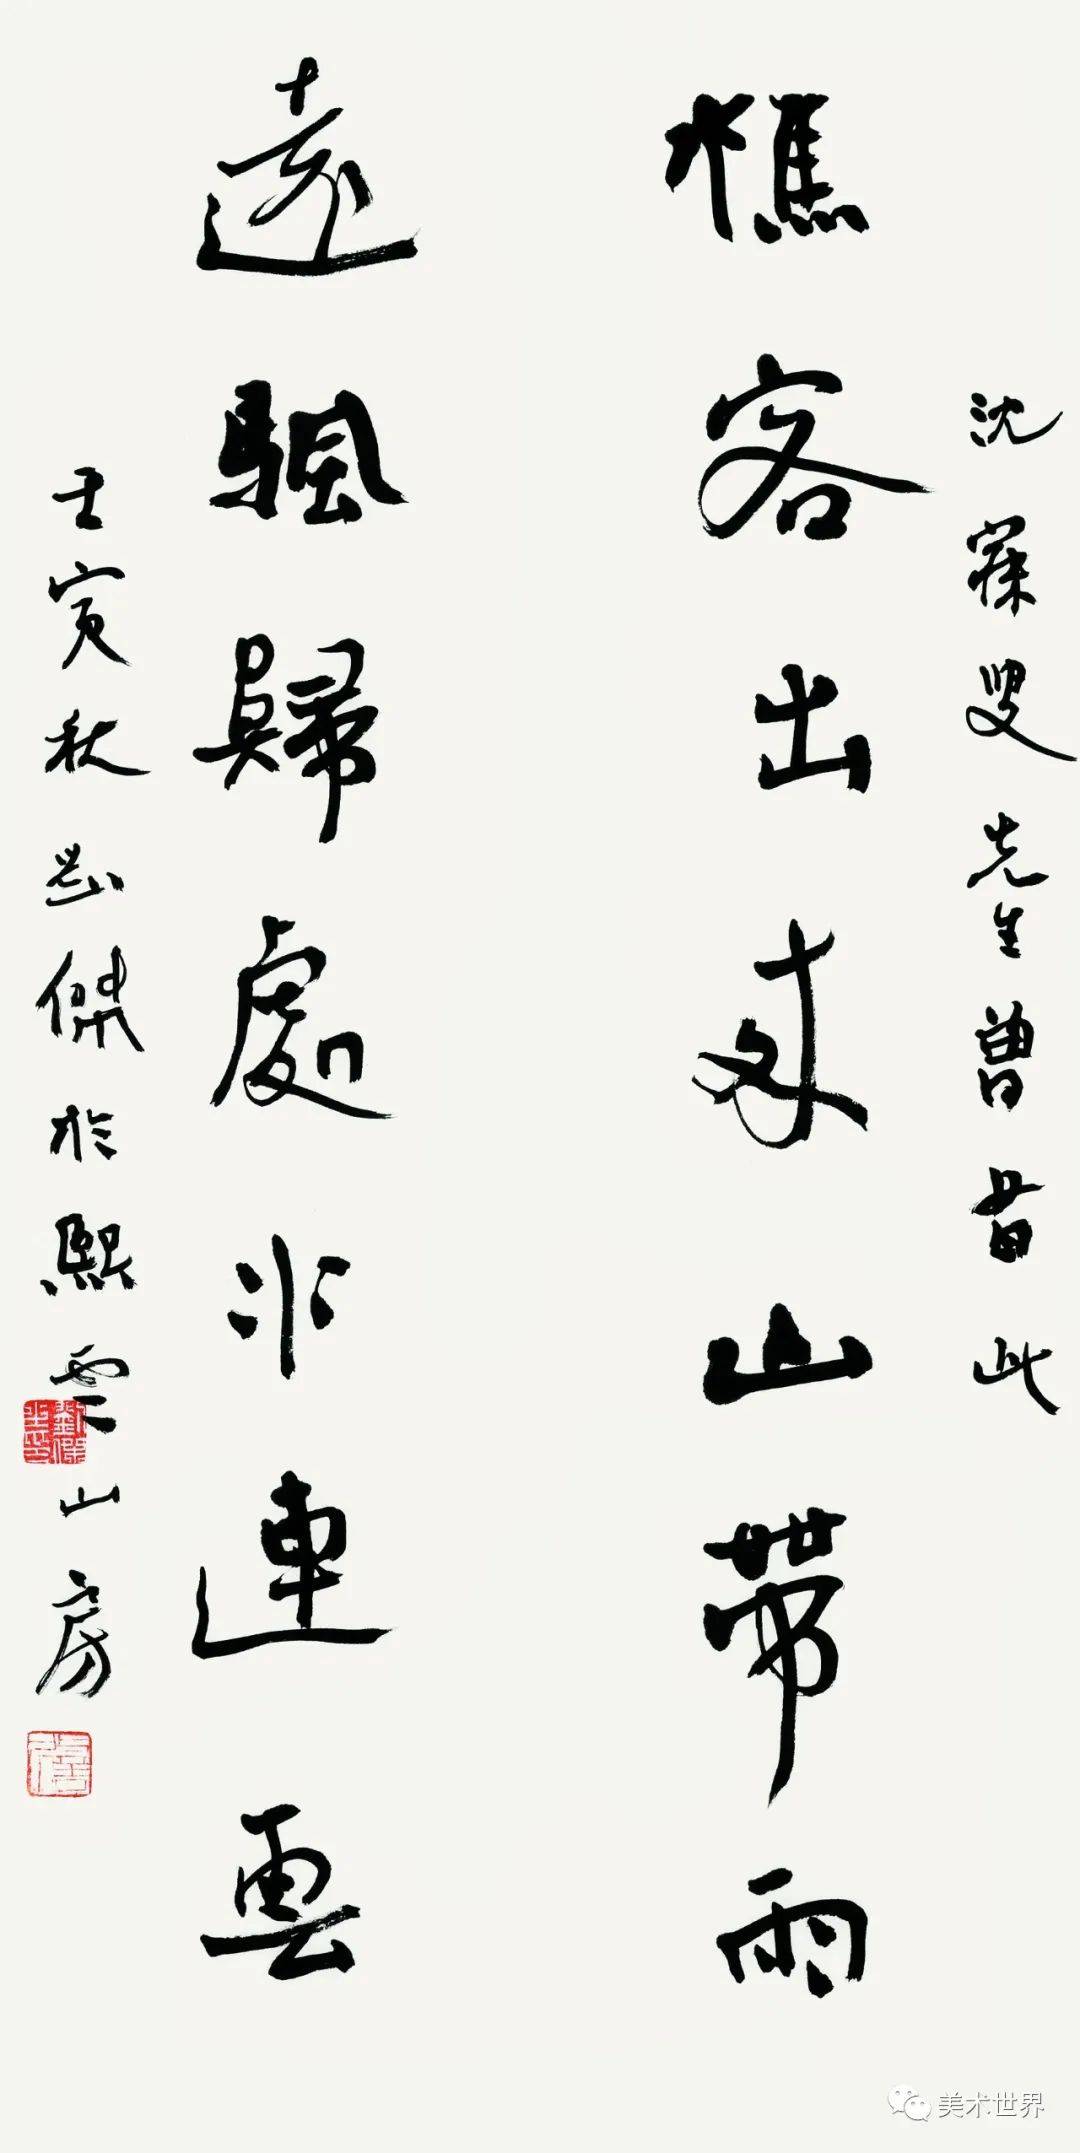 沈寐叟先生曾書此
樵客出來山帶雨
遠颿歸處水連雲
壬寅秋劉傑於熙雲山房
美术世界